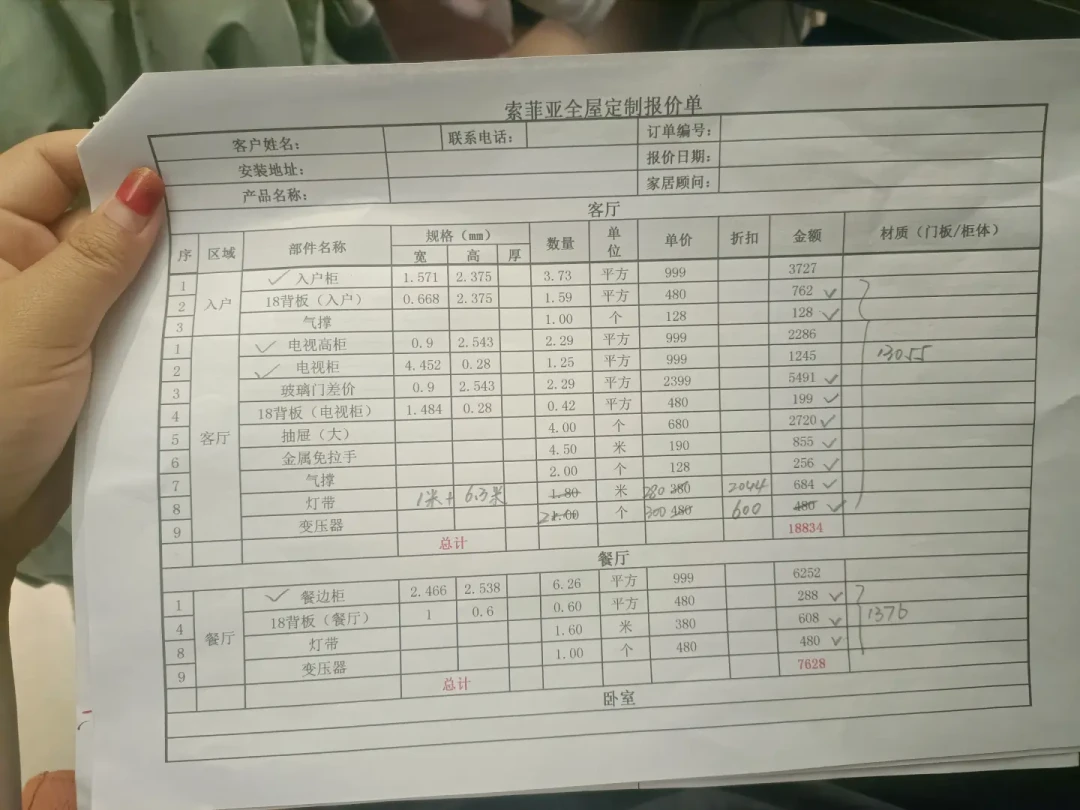 索菲亚全屋定制报价单
客户姓名： 联系电话： 订单编号：
安装地址： 报价日期：
产品名称： 家居顾问：
客厅
序 区域 部件名称 规格（mm） 数量 单位 单价 折扣 金额 材质（门板/柜体）
宽 高 厚
1 入户 ✓ 入户柜 1.571 2.375 3.73 平方 999 3727
2 18背板（入户） 0.668 2.375 1.59 平方 480 762 ✓
3 气撑 1.00 个 128 128 ✓
1 客厅 ✓ 电视高柜 0.9 2.543 2.29 平方 999 2286
2 ✓ 电视柜 4.452 0.28 1.25 平方 999 1245 13055
3 玻璃门差价 0.9 2.543 2.29 平方 2399 5491 ✓
4 18背板（电视柜） 1.484 0.28 0.42 平方 480 199 ✓
5 抽屉（大） 4.00 个 680 2720 ✓
6 金属免拉手 4.50 米 190 855 ✓
7 气撑 2.00 个 128 256 ✓
8 灯带 1米+ 6.3米 1.80 米 280 380 2044 684 ✓
9 变压器 2 1.00 个 300 480 600 480 ✓
总计 18834
餐厅
1 餐厅 ✓ 餐边柜 2.466 2.538 6.26 平方 999 6252
4 18背板（餐厅） 1 0.6 0.60 平方 480 288 ✓
8 灯带 1.60 米 380 608 ✓ 1376
9 变压器 1.00 个 480 480 ✓
总计 7628
卧室